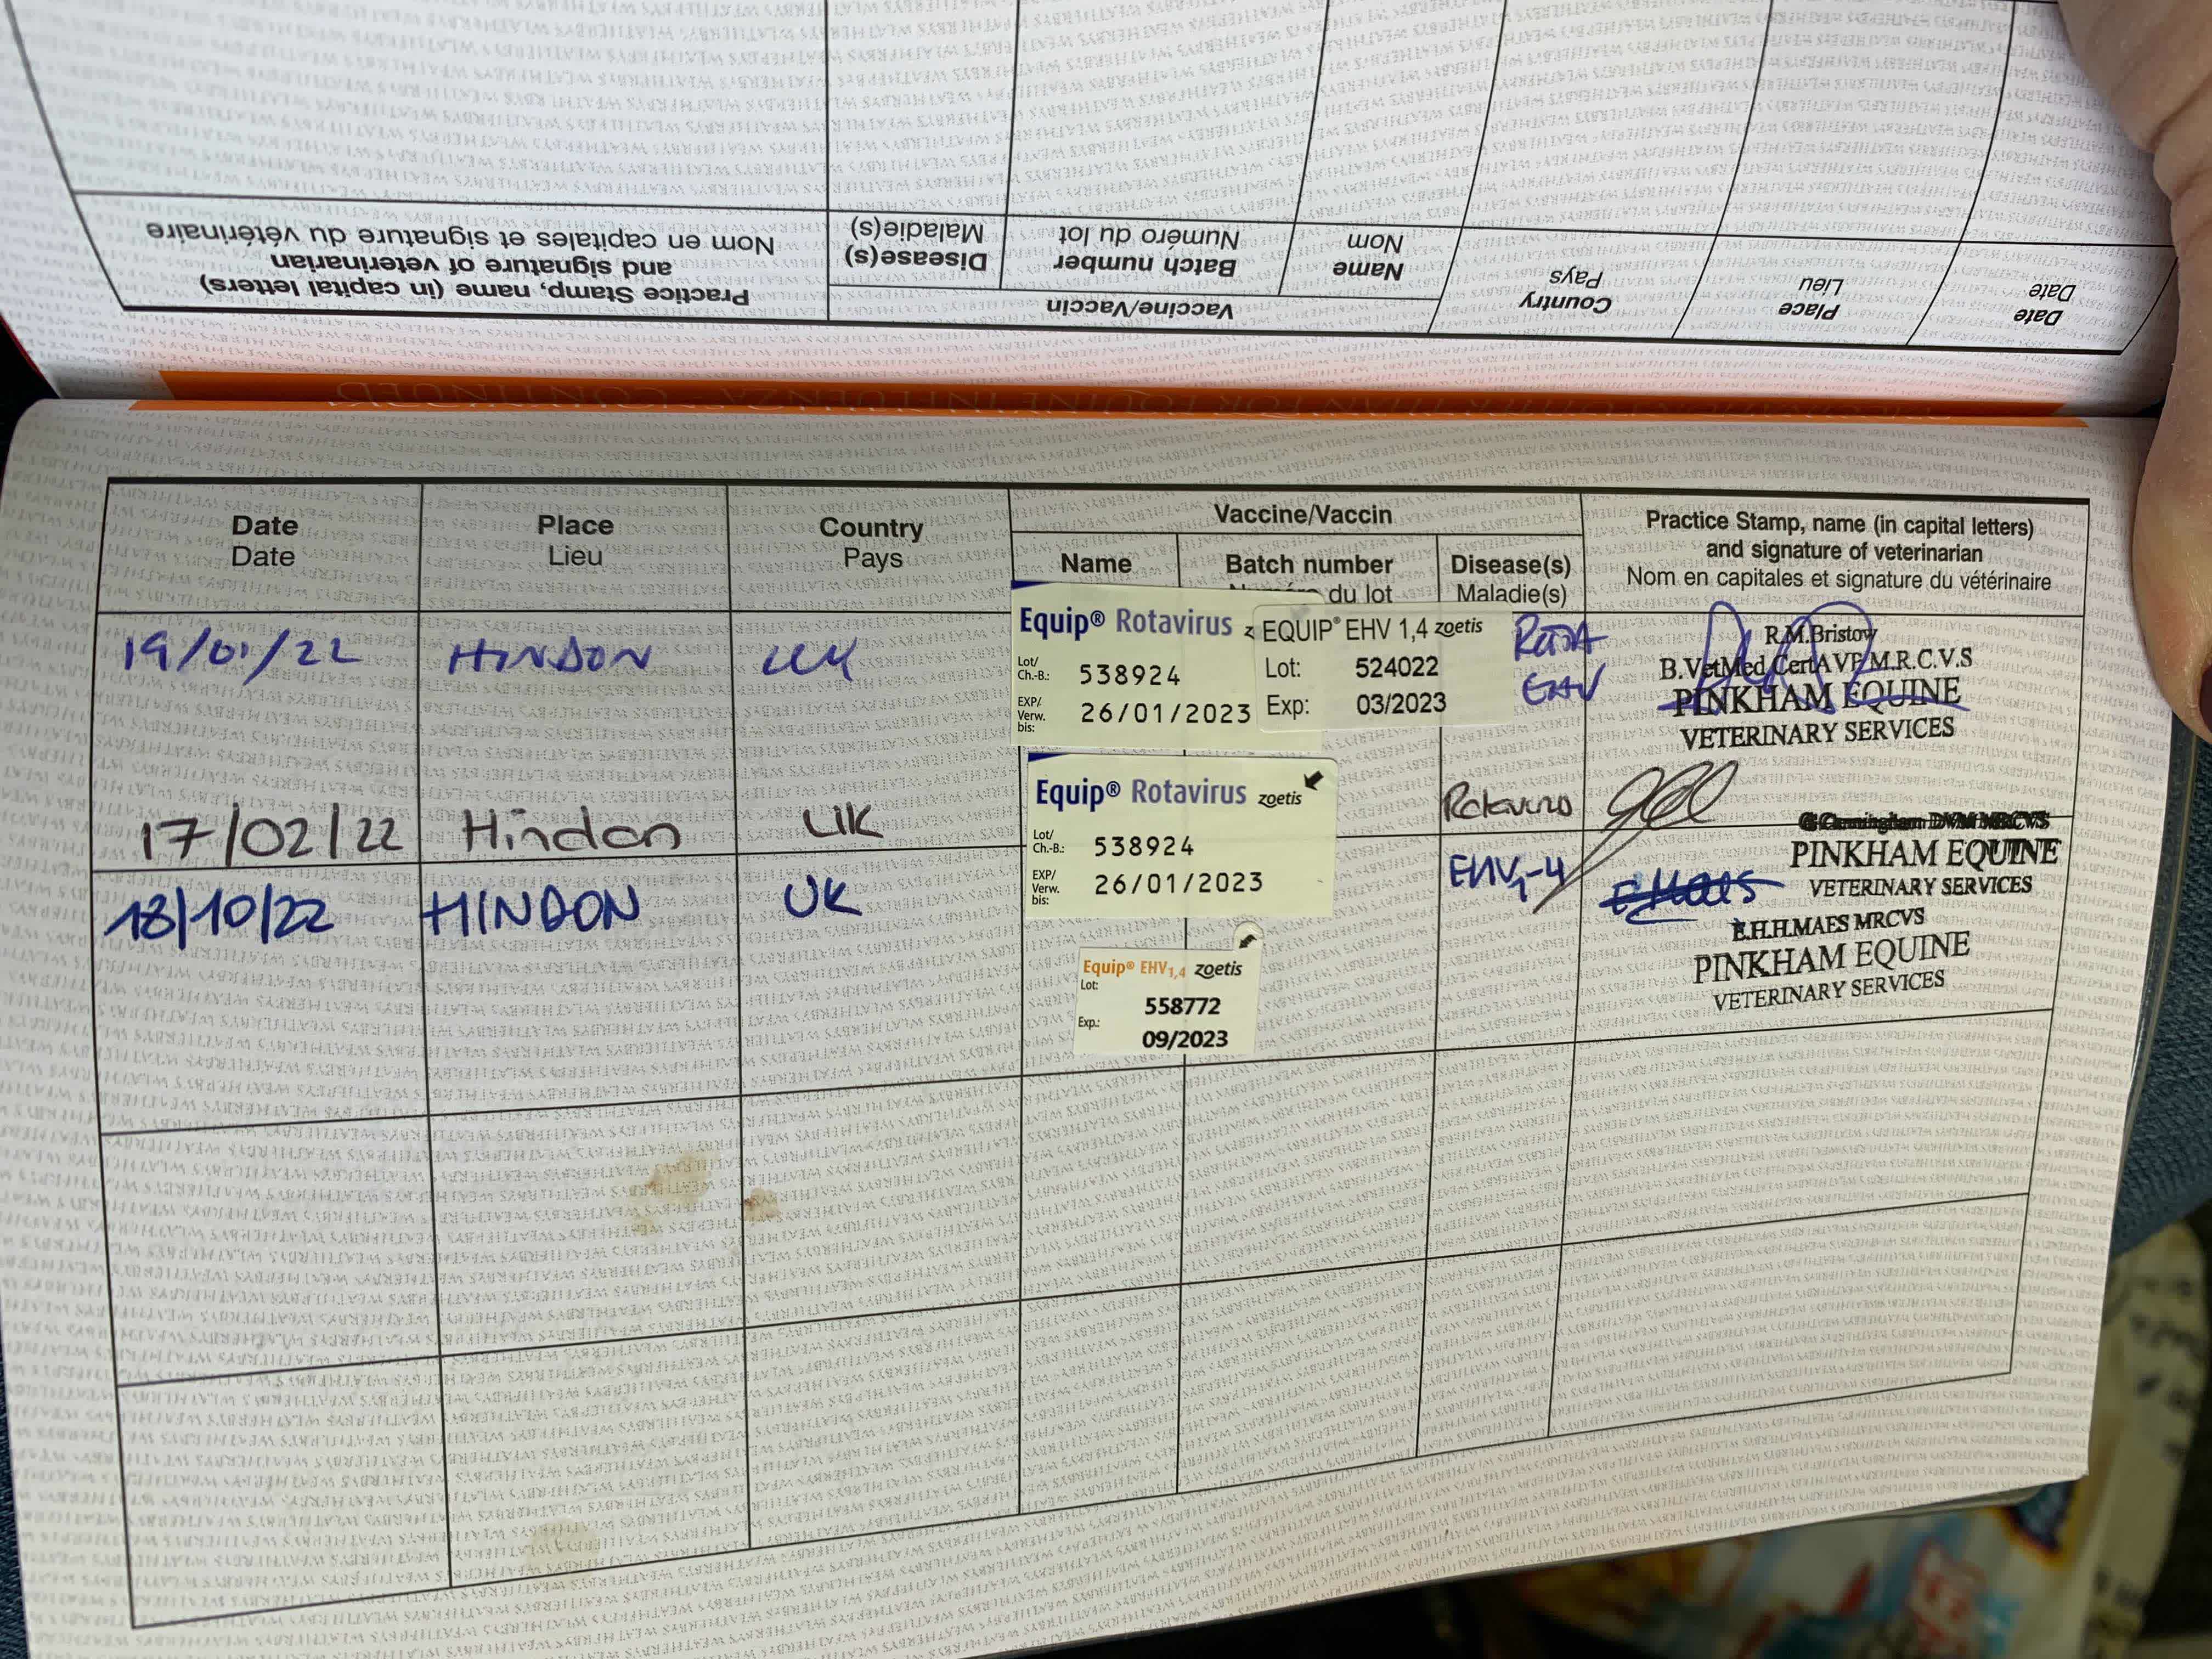 Practice Stamp, name (in capital letters)
and signature of veterinarian
Nom en capitales et signature du vétérinaire
Vaccine/Vaccin
Disease(s)
Maladie(s)
Batch number
Numéro du lot
Name
Nom
Country
Pays
Place
Lieu
Date
Date
Date
Date
Place
Lieu
Country
Pays
Vaccine/Vaccin
Name
Batch number
du lot
Disease(s)
Maladie(s)
Practice Stamp, name (in capital letters)
and signature of veterinarian
Nom en capitales et signature du vétérinaire
19/01/22
HINDON
UK
Equip® Rotavirus
Lot/
Ch.-B.:
538924
EXP/
Verw.
bis:
26/01/2023
EQUIP® EHV 1,4 zoetis
Lot: 524022
Exp: 03/2023
Rota
EHV
R.M.Bristow
B.VetMed CertAVP M.R.C.V.S
PINKHAM EQUINE
VETERINARY SERVICES
17/02/22
Hindon
UK
Equip® Rotavirus zoetis
Lot/
Ch.-B.:
538924
EXP/
Verw.
bis:
26/01/2023
Rotavirus
PINKHAM EQUINE
VETERINARY SERVICES
18/10/22
HINDON
UK
Equip® EHV1,4 zoetis
Lot:
558772
Exp.:
09/2023
EHV1-4
EMaes
E.H.H.MAES MRCVS
PINKHAM EQUINE
VETERINARY SERVICES